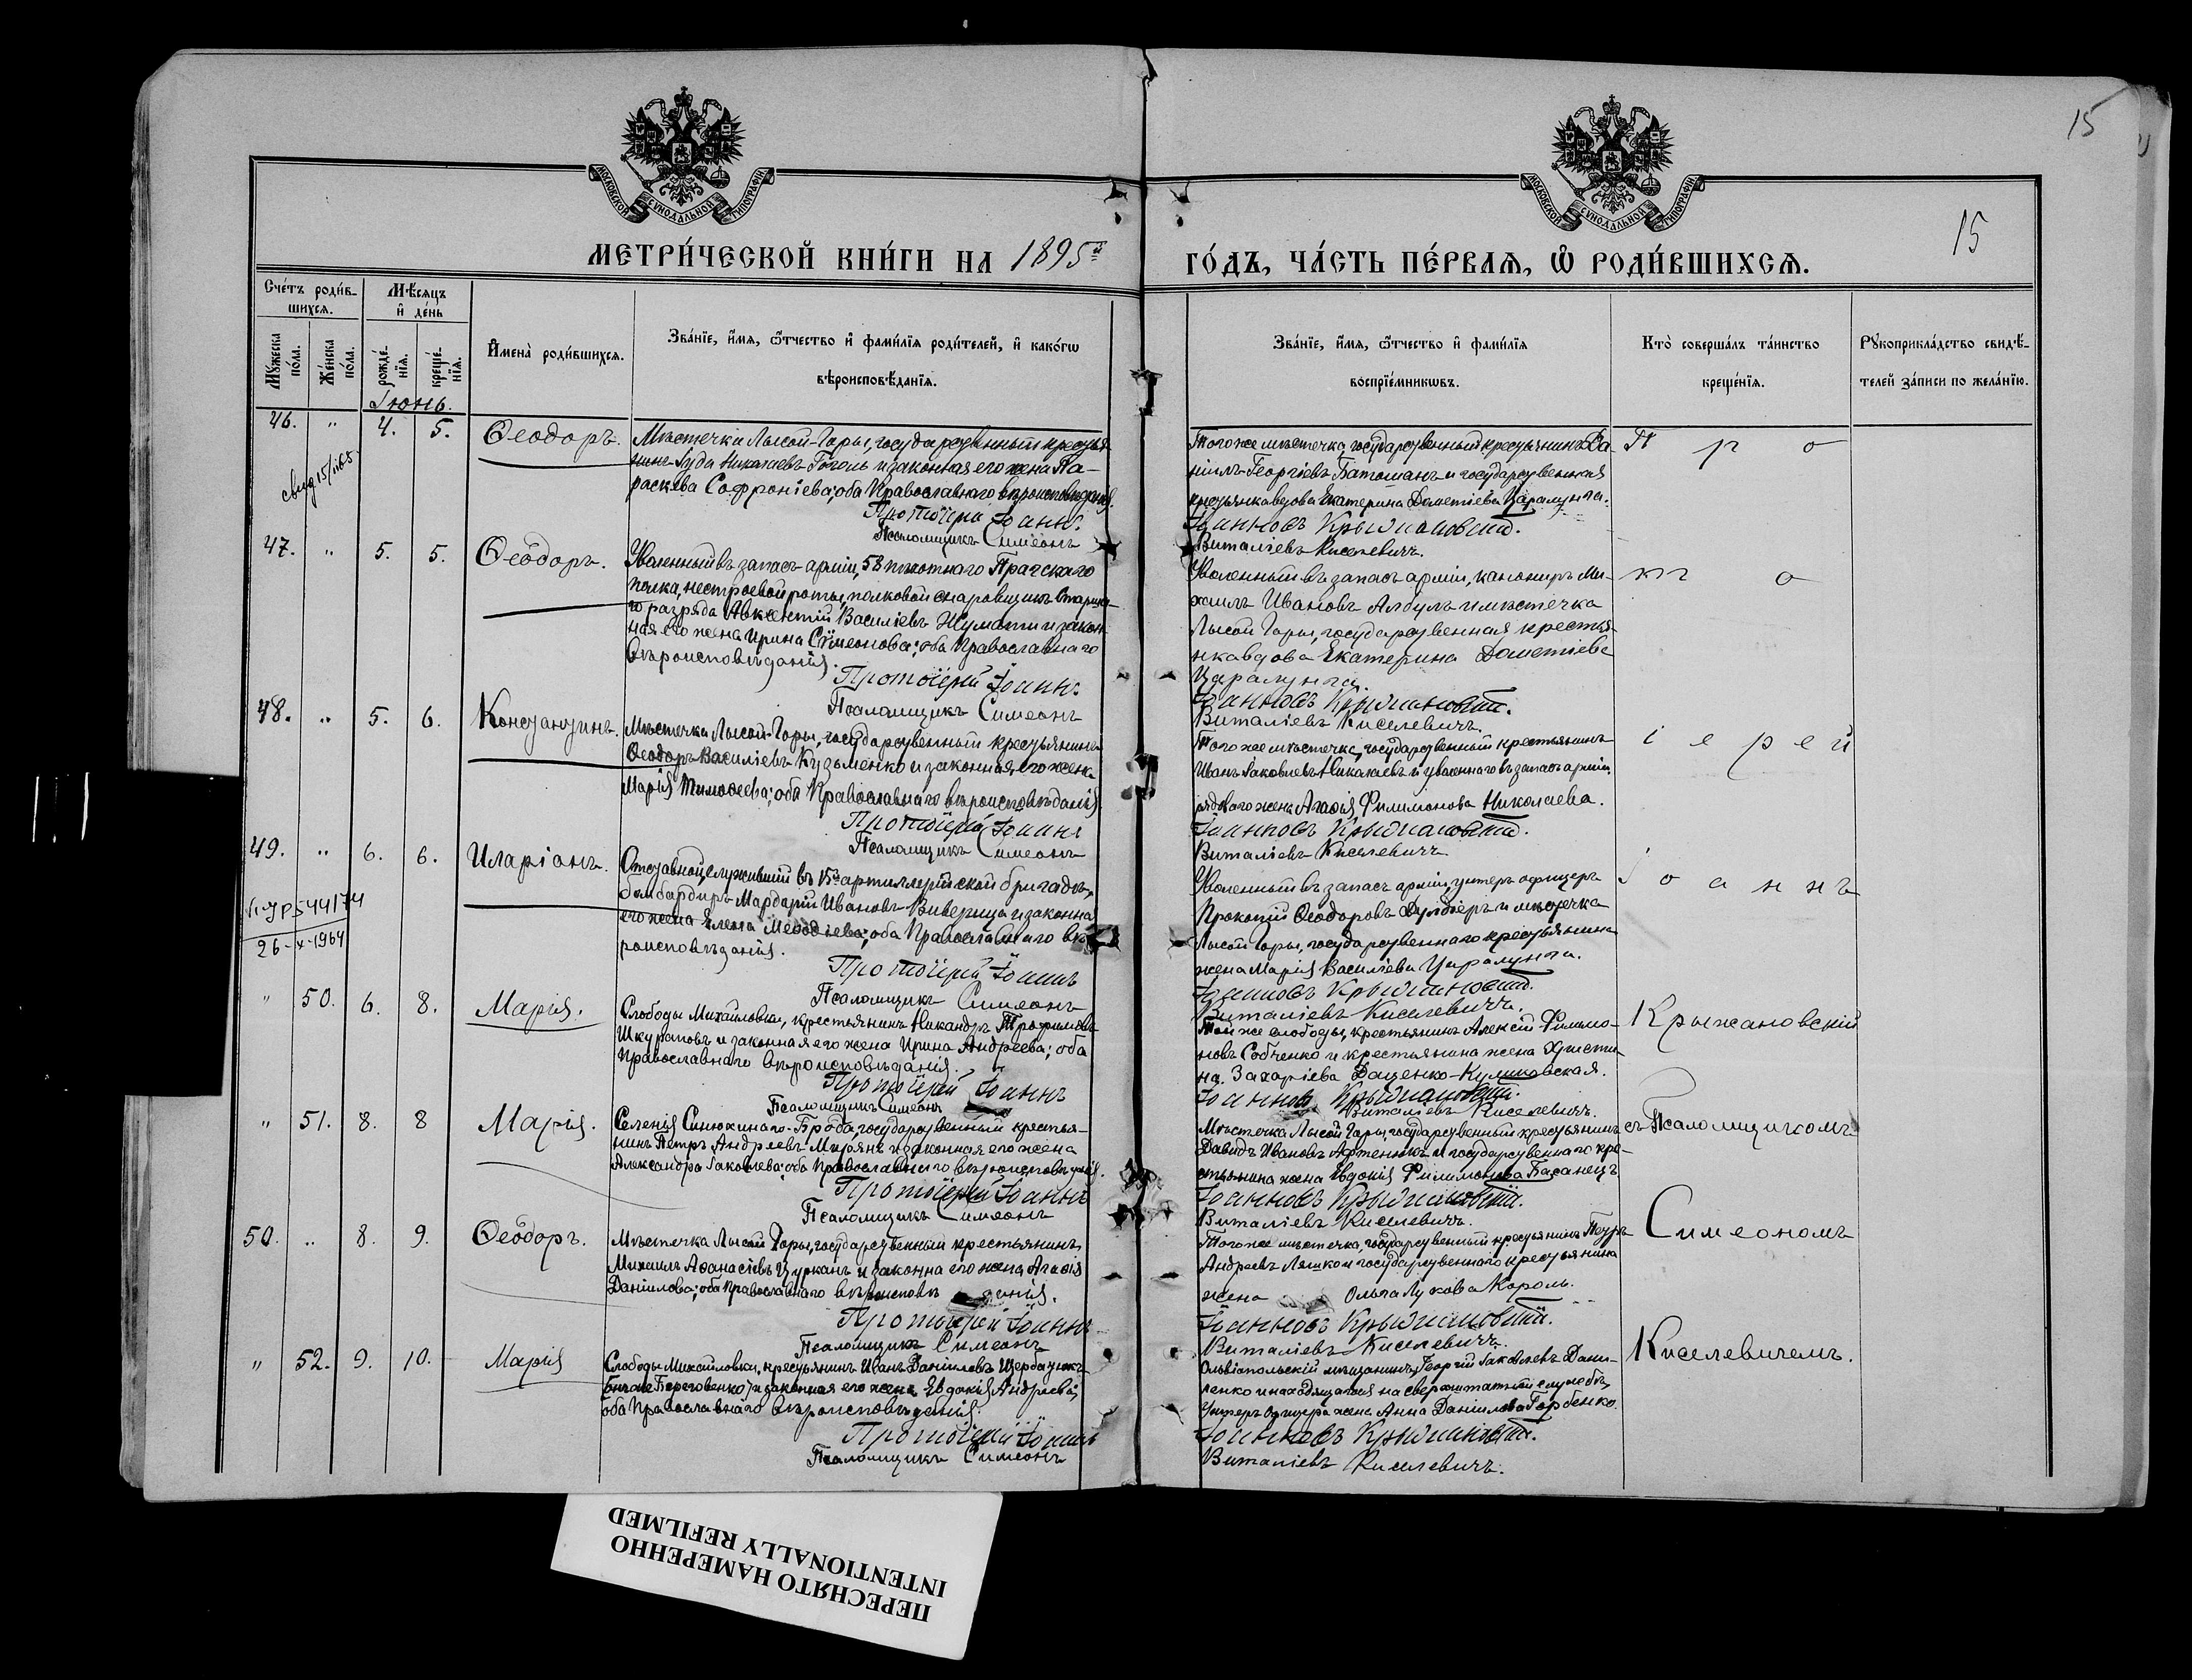 15
МОСКОВСКОЙ СѴНОДАЛЬНОЙ ТИПОГРАФІИ.
МОСКОВСКОЙ СѴНОДАЛЬНОЙ ТИПОГРАФІИ.
15
МЕТРИ́ЧЕСКОЙ КНИ́ГИ НА 1895й
ГО́ДЪ, ЧА́СТЬ ПЕ́РВАѦ, Ѡ РОДИ́ВШИХСѦ.
Сче́тъ роди́в-
шихсѧ.
Мѣ́сѧцъ
и де́нь
Мꙋ́жеска по́ла.
Же́нска по́ла.
рожде́-нїѧ.
креще́-нїѧ.
И҆мена̀ роди́вшихсѧ.
Зва́нїе, и҆́мѧ, ѻ҆́тчество и҆ фами́лїѧ роди́телей, и҆ како́гѡ
вѣроисповѣ́данїѧ.
Зва́нїе, и҆́мѧ, ѻ҆́тчество и҆ фами́лїѧ
воспрїе́мникѡвъ.
Кто̀ соверша́лъ та́инство
креще́нїѧ.
Рꙋкоприкла́дство свидѣ́-
телей за́писи по жела́нїю.
Іюнь.
46. " 4. 5. Ѳеодоръ.
Мѣстечка Лысой-Горы, государственный крестья
нинъ Іуда Николаевъ Гоголь и законная его жена Па-
раскева Софроніева; оба Православнаго вѣроисповѣданія.
Протоіерей Іоаннъ
Псаломщикъ Симеонъ
Того же мѣстечка, государственный крестьянинъ Да-
ніилъ Георгіевъ Батошанъ и государственная
крестьянка вдова Екатерина Дометіева Царалунга.
Іоанновъ Крыжановскій.
Виталіевъ Киселевичъ.
П р о
свид 15/
47. " 5. 5. Ѳеодоръ.
Уволенный въ запасъ арміи, 58 пѣхотнаго Прагскаго
полка, нестроевой роты, полковой закройщикъ старша-
го разряда Авксентій Василіевъ Жумати и закон
ная его жена Ирина Симеонова; оба Православнаго
вѣроисповѣданія.
Протоіерей Іоаннъ
Псаломщикъ Симеонъ
Уволенный въ запасъ арміи, канониръ Ми-
хаилъ Ивановъ Албулъ и мѣстечка
Лысой Горы, государственная крестья-
нка вдова Екатерина Дометіева
Царалунга.
Іоанновъ Крыжановскій.
Виталіевъ Киселевичъ.
т о
48. " 5. 6. Константинъ.
Мѣстечка Лысой-Горы, государственный крестьянинъ
Ѳеодоръ Василіевъ Кузьменко и законная его жена
Марія Тимоѳеева; оба Православнаго вѣроисповѣданія
Протоіерей Іоаннъ
Псаломщикъ Симеонъ
Того же мѣстечка, государственный крестьянинъ
Иванъ Іаковлевъ Николаевъ и уволеннаго въ запасъ арміи
рядоваго жена Агаѳія Филимонова Николаева.
Іоанновъ Крыжановскій.
Виталіевъ Киселевичъ
і е р е й
49. " 6. 6. Иларіонъ.
Отставной, служившій въ 15й артиллерійской бригадѣ,
бомбардиръ Мардарій Ивановъ Виверица и законна
его жена Елена Меѳодіева; оба Православнаго вѣ
роисповѣданія.
Протоіерей Іоаннъ
Псаломщикъ Симеонъ
Уволенный въ запасъ арміи, унтеръ офицеръ
Прокопій Ѳеодоровъ Дулдіеръ и мѣстечка
Лысой Горы, государственнаго крестьянина
жена Марія Василіева Царалунга.
Іоанновъ Крыжановскій.
Виталіевъ Киселевичъ.
І о а н н ъ
544174
26-X-1964
" 50. 6. 8. Марія.
Слободы Михайловки, крестьянинъ Никандръ Трофимовъ
Шкуратовъ и законная его жена Ирина Андреева; оба
Православнаго вѣроисповѣданія.
Протоіерей Іоаннъ
Псаломщикъ Симеонъ
Той же слободы, крестьянинъ Алексій Филимо-
новъ Собченко и крестьянина жена Христи-
на Захаріева Даценко-Куликовская.
Іоанновъ Крыжановскій.
Виталіевъ Киселевичъ.
Крыжановскій
" 51. 8. 8 Марія.
Селенія Синюхинаго-Брода, государственный крестья-
нинъ Петръ Андреевъ Мироянъ и законная его жена
Александра Іаковлева; оба Православнаго вѣроисповѣданія.
Протоіерей Іоаннъ
Псаломщикъ Симеонъ
Мѣстечка Лысой Горы, государственный крестьянинъ
Давидъ Ивановъ Артенюкъ и государственнаго кре-
стьянина жена Евдокія Филимонова Басанецъ
Іоанновъ Крыжановскій.
Виталіевъ Киселевичъ.
съ Псаломщикомъ
50. " 8. 9. Ѳеодоръ.
Мѣстечка Лысой Горы, государственный крестьянинъ
Михаилъ Аѳанасіевъ Цурканъ и законна его жена Агаѳія
Даніилова; оба Православнаго вѣроисповѣ данія.
Протоіерей Іоаннъ
Псаломщикъ Симеонъ
Того же мѣстечка, государственный крестьянинъ Петръ
Андреевъ Ляшко и государственнаго крестьянина
жена Ольга Лукова Король.
Іоанновъ Крыжановскій.
Виталіевъ Киселевичъ.
Симеономъ
" 52. 9. 10. Марія
Слободы Михайловки, крестьянинъ Иванъ Даніиловъ Щербатюкъ
Береговенко) и законная его жена Евдокія Андреева;
оба Православнаго вѣроисповѣданія.
Протоіерей Іоаннъ
Псаломщикъ Симеонъ
Ольвіопольскій мѣщанинъ Георгій Іаковлевъ Дани-
ленко и находящагося на сверхштатной службѣ
унтеръ офицера жена Анна Даніилова Горбенко.
Іоанновъ Крыжановскій.
Виталіевъ Киселевичъ.
Киселевичемъ.
ПЕРЕСНЯТО НАМЕРЕННО
INTENTIONALLY REFILMED